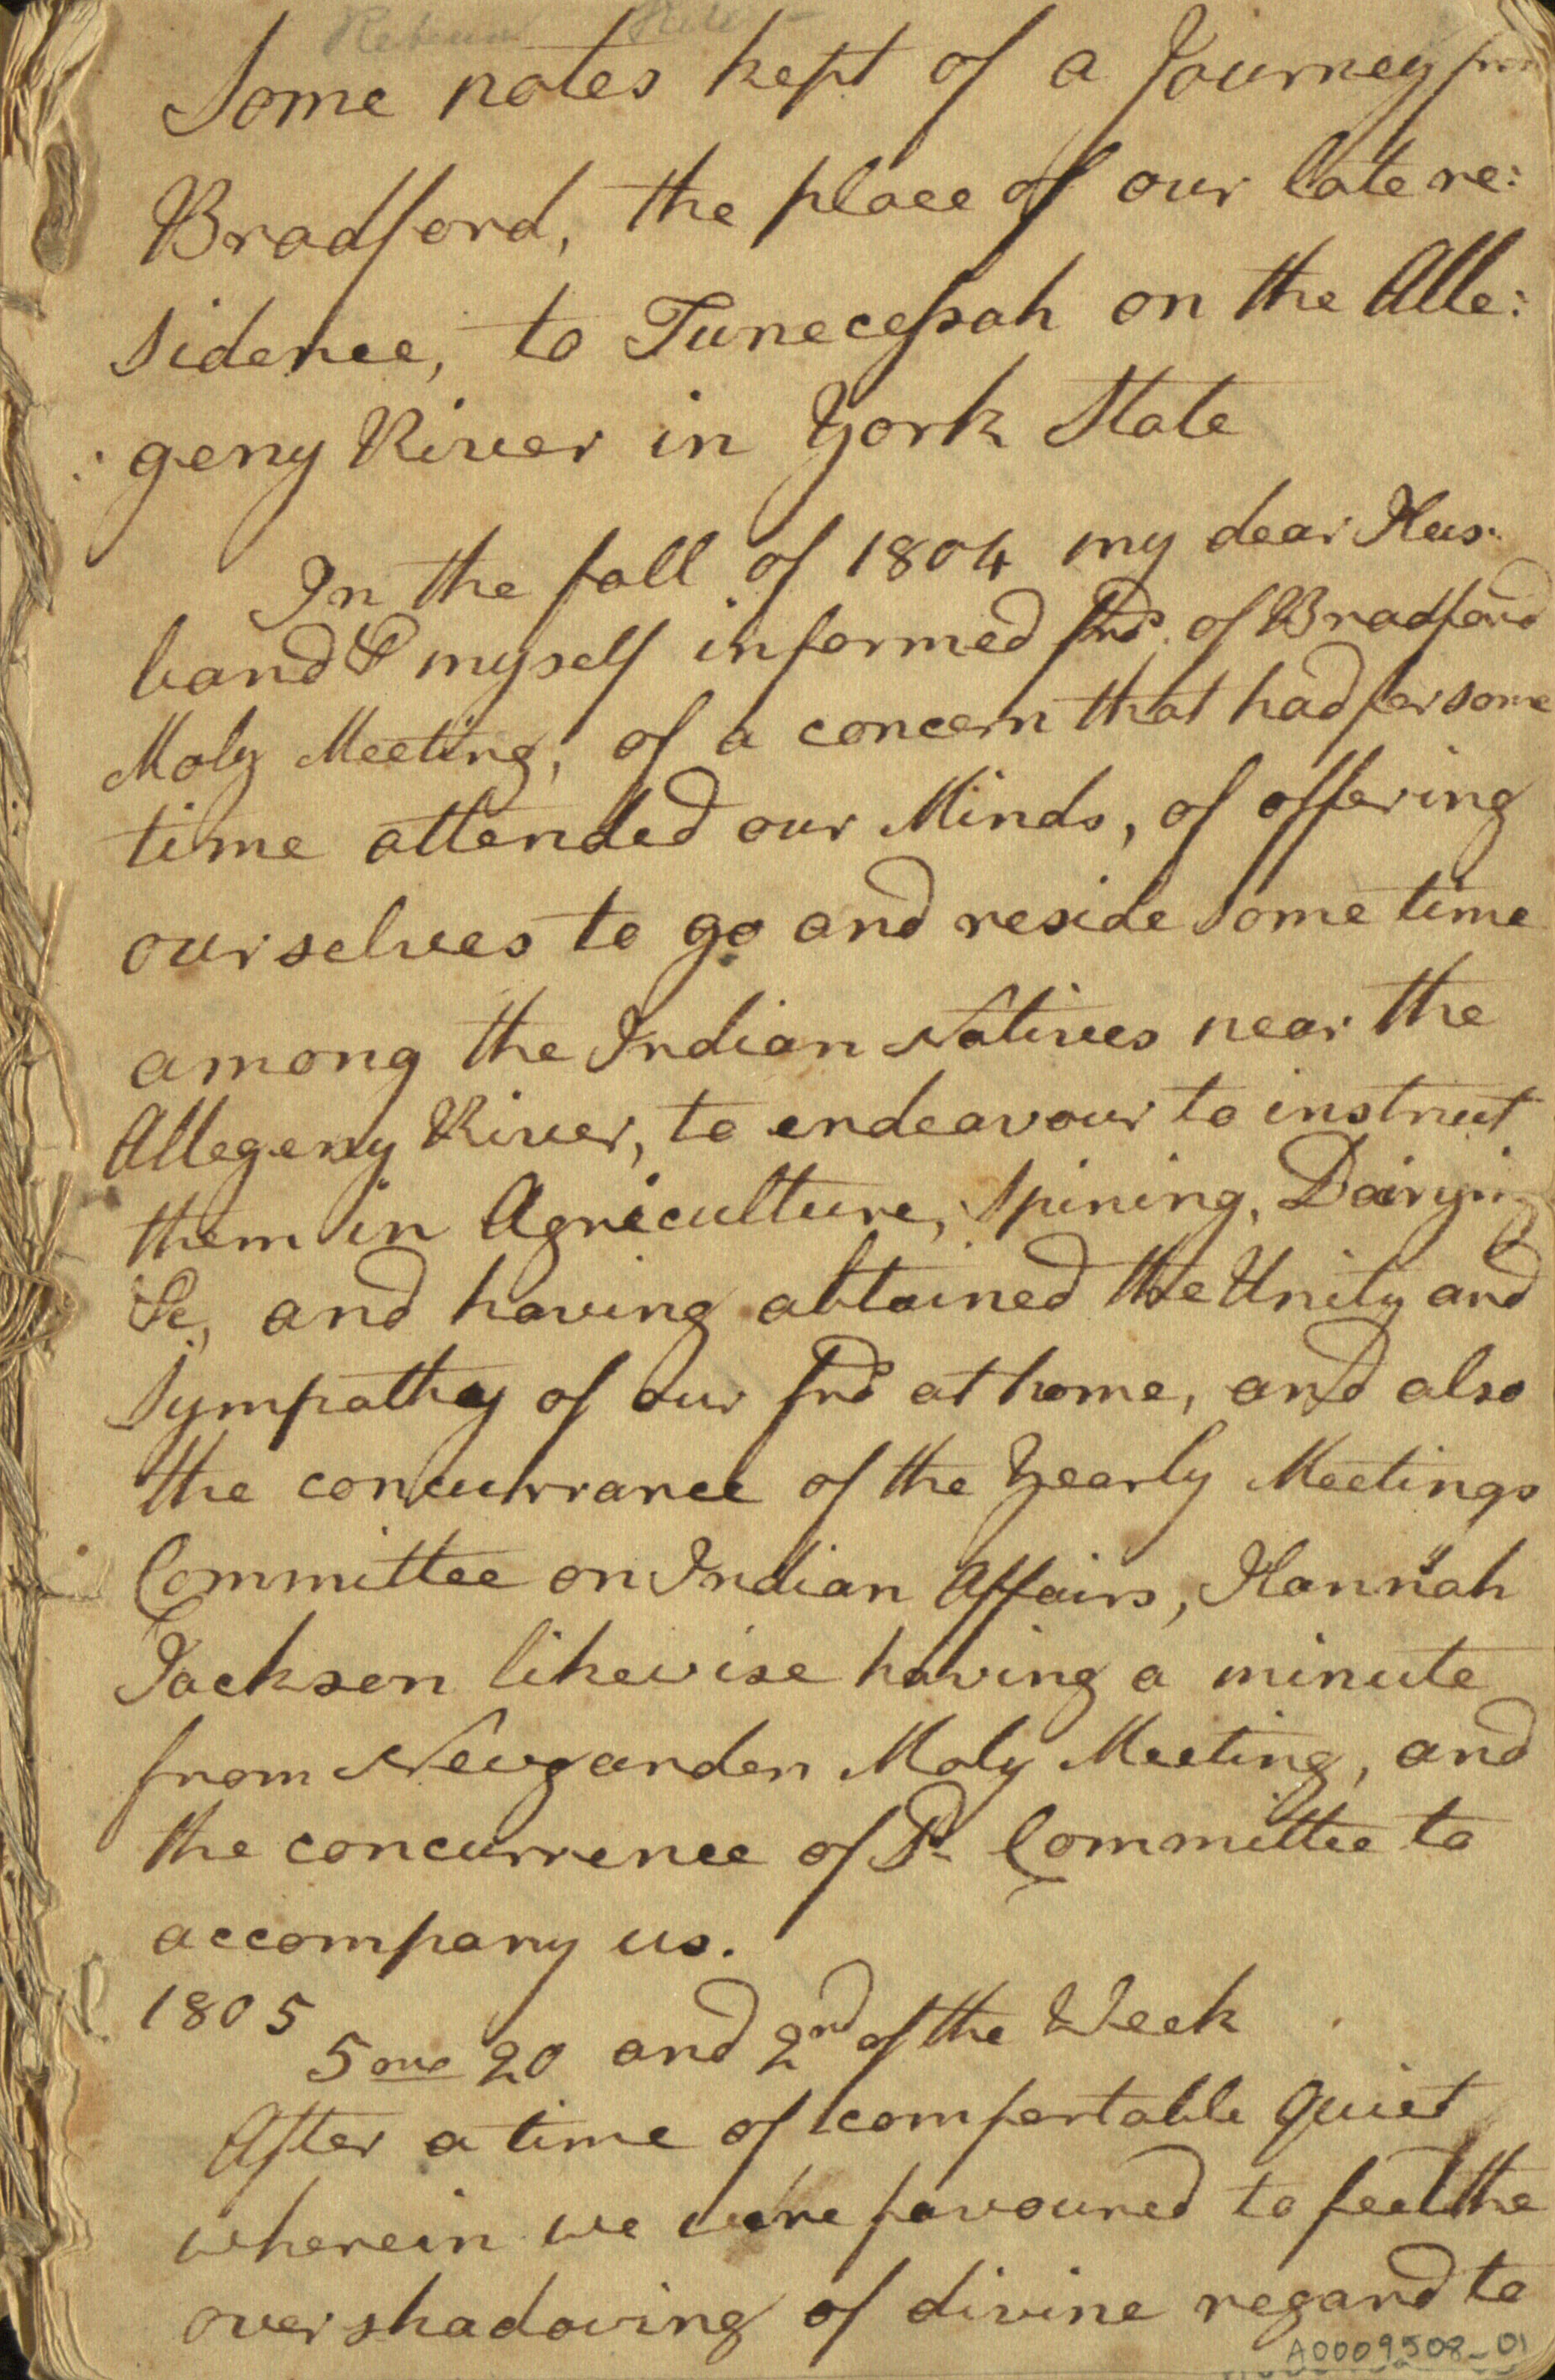 Some notes kept of a Journey from
Bradford, the place of our late re:
sidence, to Tunecessah on the Alle:
:geny River in York State
In the fall of 1804 my dear Hus-
band & myself informed frds. of Bradford
Moly Meeting, of a concern that had for some
time attended our Minds, of offering
ourselves to go and reside some time
among the Indian Natives near the
Allegeny River, to endeavour to instruct
them in Agriculture, Spining, Dairying
&c, and having obtained the Unity and
Sympathy of our frds at home, and also
the concurrance of the Yearly Meetings
Committee on Indian Affairs, Hannah
Jackson likewise having a minute
from Newgarden Moly Meeting, and
the concurrence of sd. Committee to
accompany us.
1805
5 mo 20 and 2nd of the Week
After a time of comfortable quiet
wherein we were favoured to feel the
overshadowing of divine regard to
A0009508-01